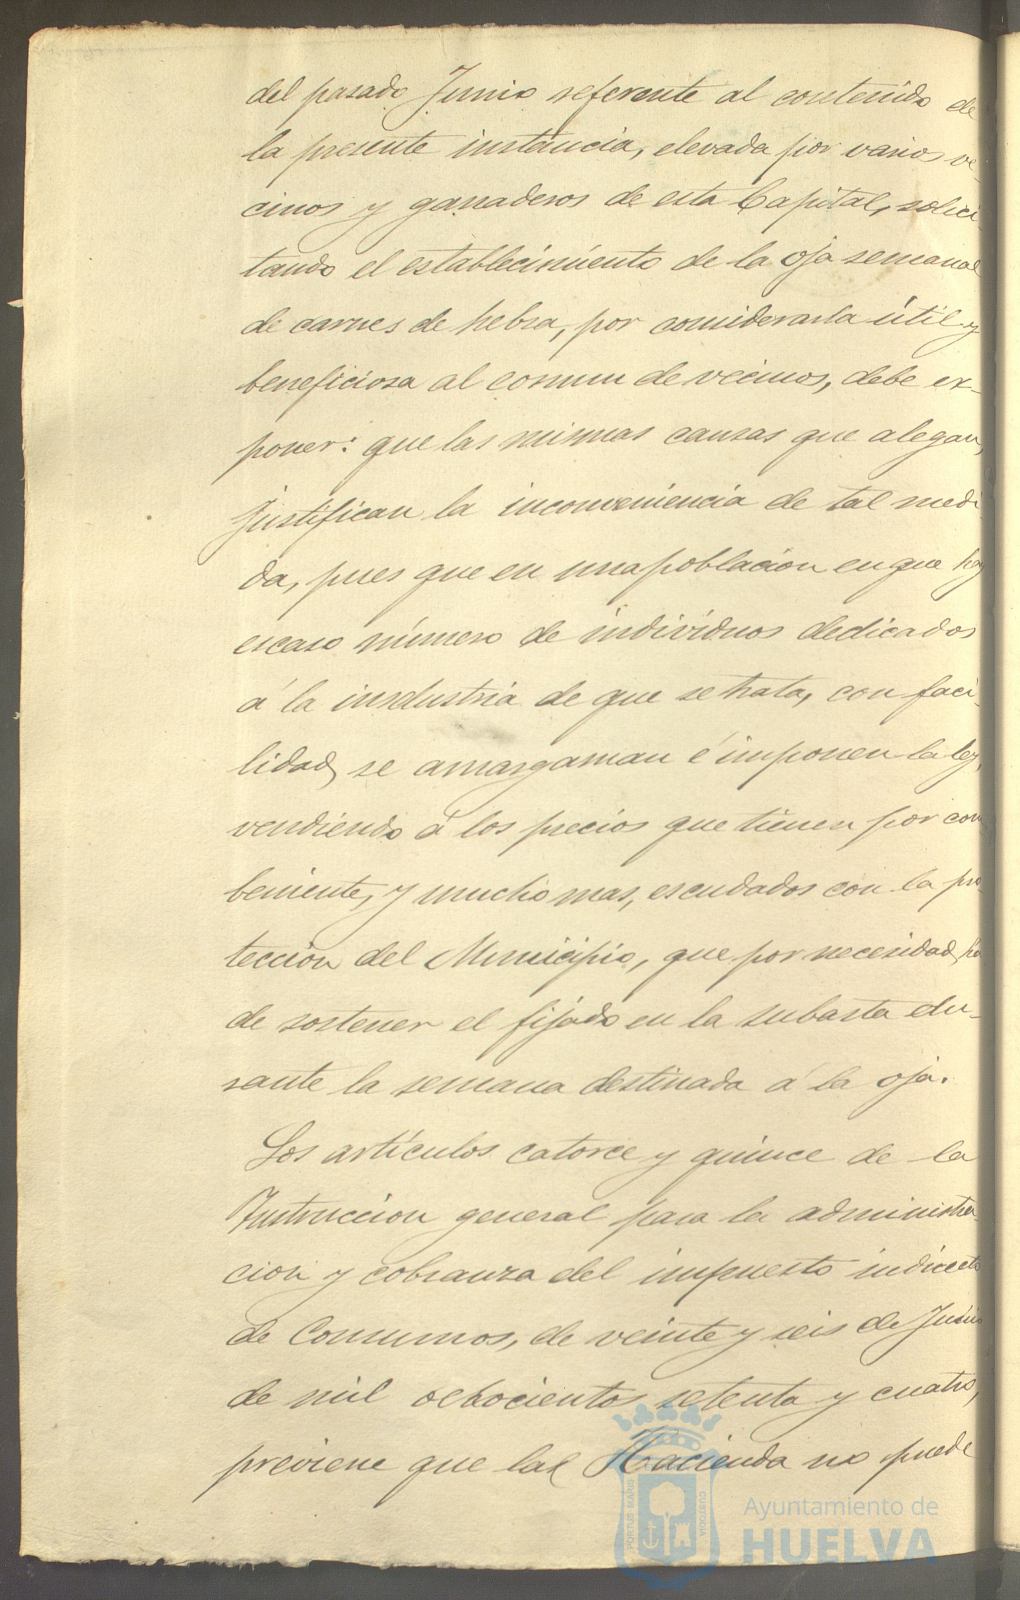 del pasado Junio referente al contenido de
la presente instancia, elevada por varios ve-
cinos y ganaderos de esta Capital, solici-
tando el establecimiento de la oja semanal
de carnes de hebra, por considerarla útil y
beneficiosa al comun de vecinos, debe ex-
poner: que las mismas causas que alegan,
justifican la inconveniencia de tal medi
da, pues que en una poblacion en que hay
escaso número de individuos dedicados
á la industria de que se trata, con faci-
lidad, se amargaman é imponen la ley,
vendiendo á los precios que tienen por con
beniente, y mucho mas, escudados con la pro-
teccion del Municipio, que por necesidad, ha
de sostener el fijado en la subasta du-
rante la semana destinada á la oja.
Los artículos catorce y quince de la
Instruccion general para la administra-
cion y cobranza del impuesto indirecto
de Consumos, de veinte y seis de Junio
de mil ochocientos setenta y cuatro,
previene que la Hacienda no puede
PORTUS MARIS CUSTODIA
Ayuntamiento de
HUELVA